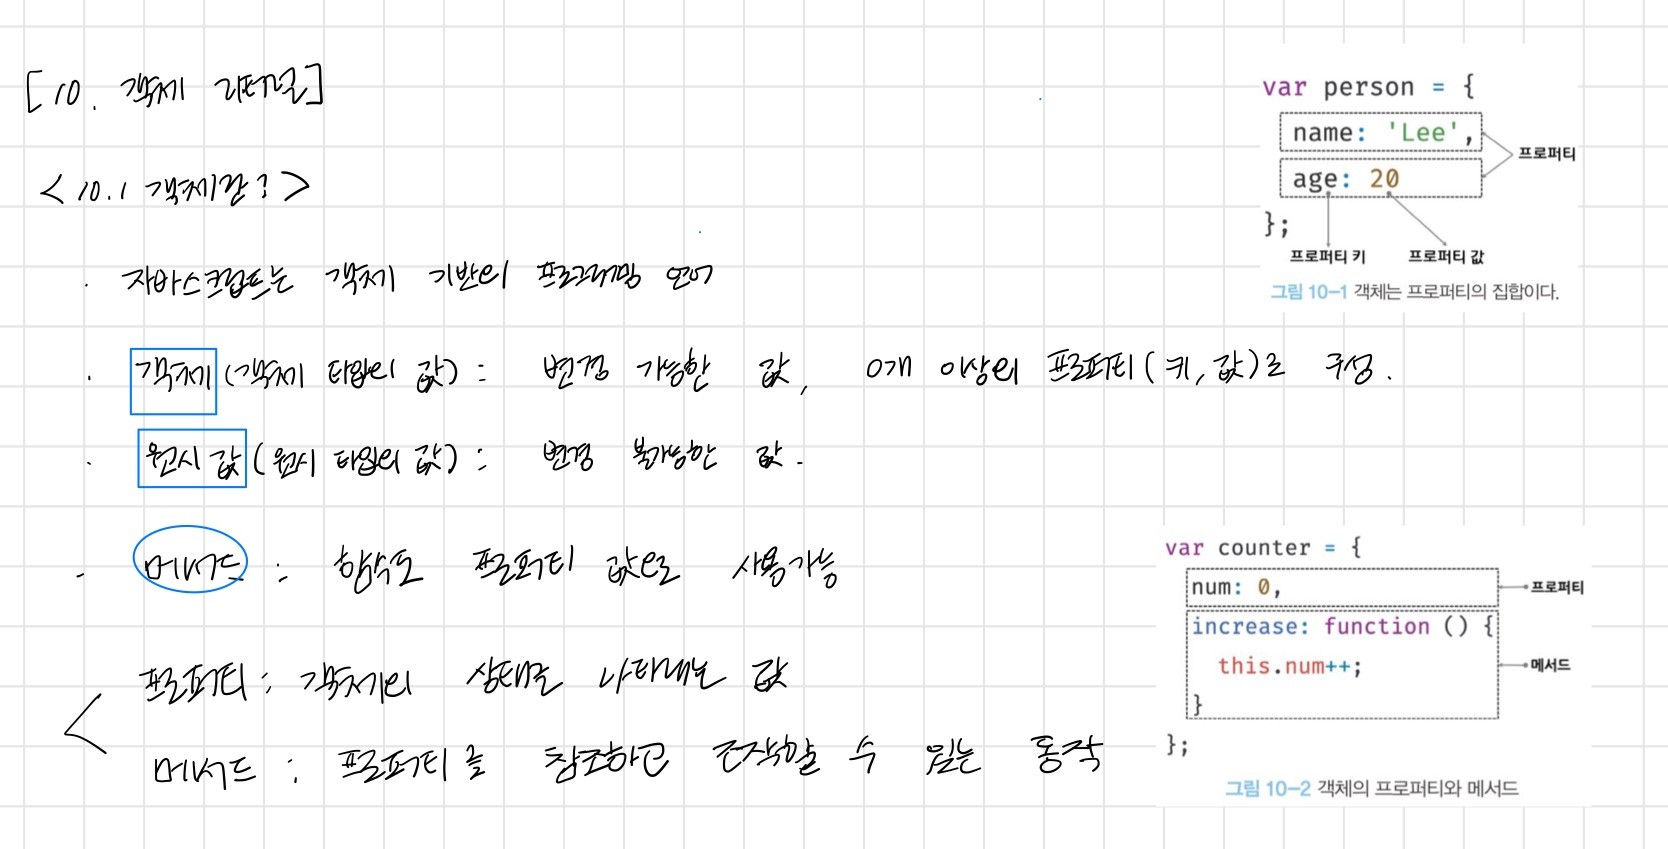 [10. 객체 리터럴]
<10.1 객체란?>
· 자바스크립트는 객체 기반의 프로그래밍 언어
· 객체 (객체 타입의 값) : 변경 가능한 값, 0개 이상의 프로퍼티(키, 값)로 구성.
· 원시 값 (원시 타입의 값) : 변경 불가능한 값.
· 메서드 : 함수도 프로퍼티 값으로 사용가능
< 프로퍼티 : 객체의 상태를 나타내는 값
메서드 : 프로퍼티를 참조하고 조작할 수 있는 동작
var person = {
name: 'Lee',
age: 20
};
프로퍼티
프로퍼티 키 프로퍼티 값
그림 10-1 객체는 프로퍼티의 집합이다.
var counter = {
num: 0,
프로퍼티
increase: function () {
this.num++;
메서드
}
};
그림 10-2 객체의 프로퍼티와 메서드